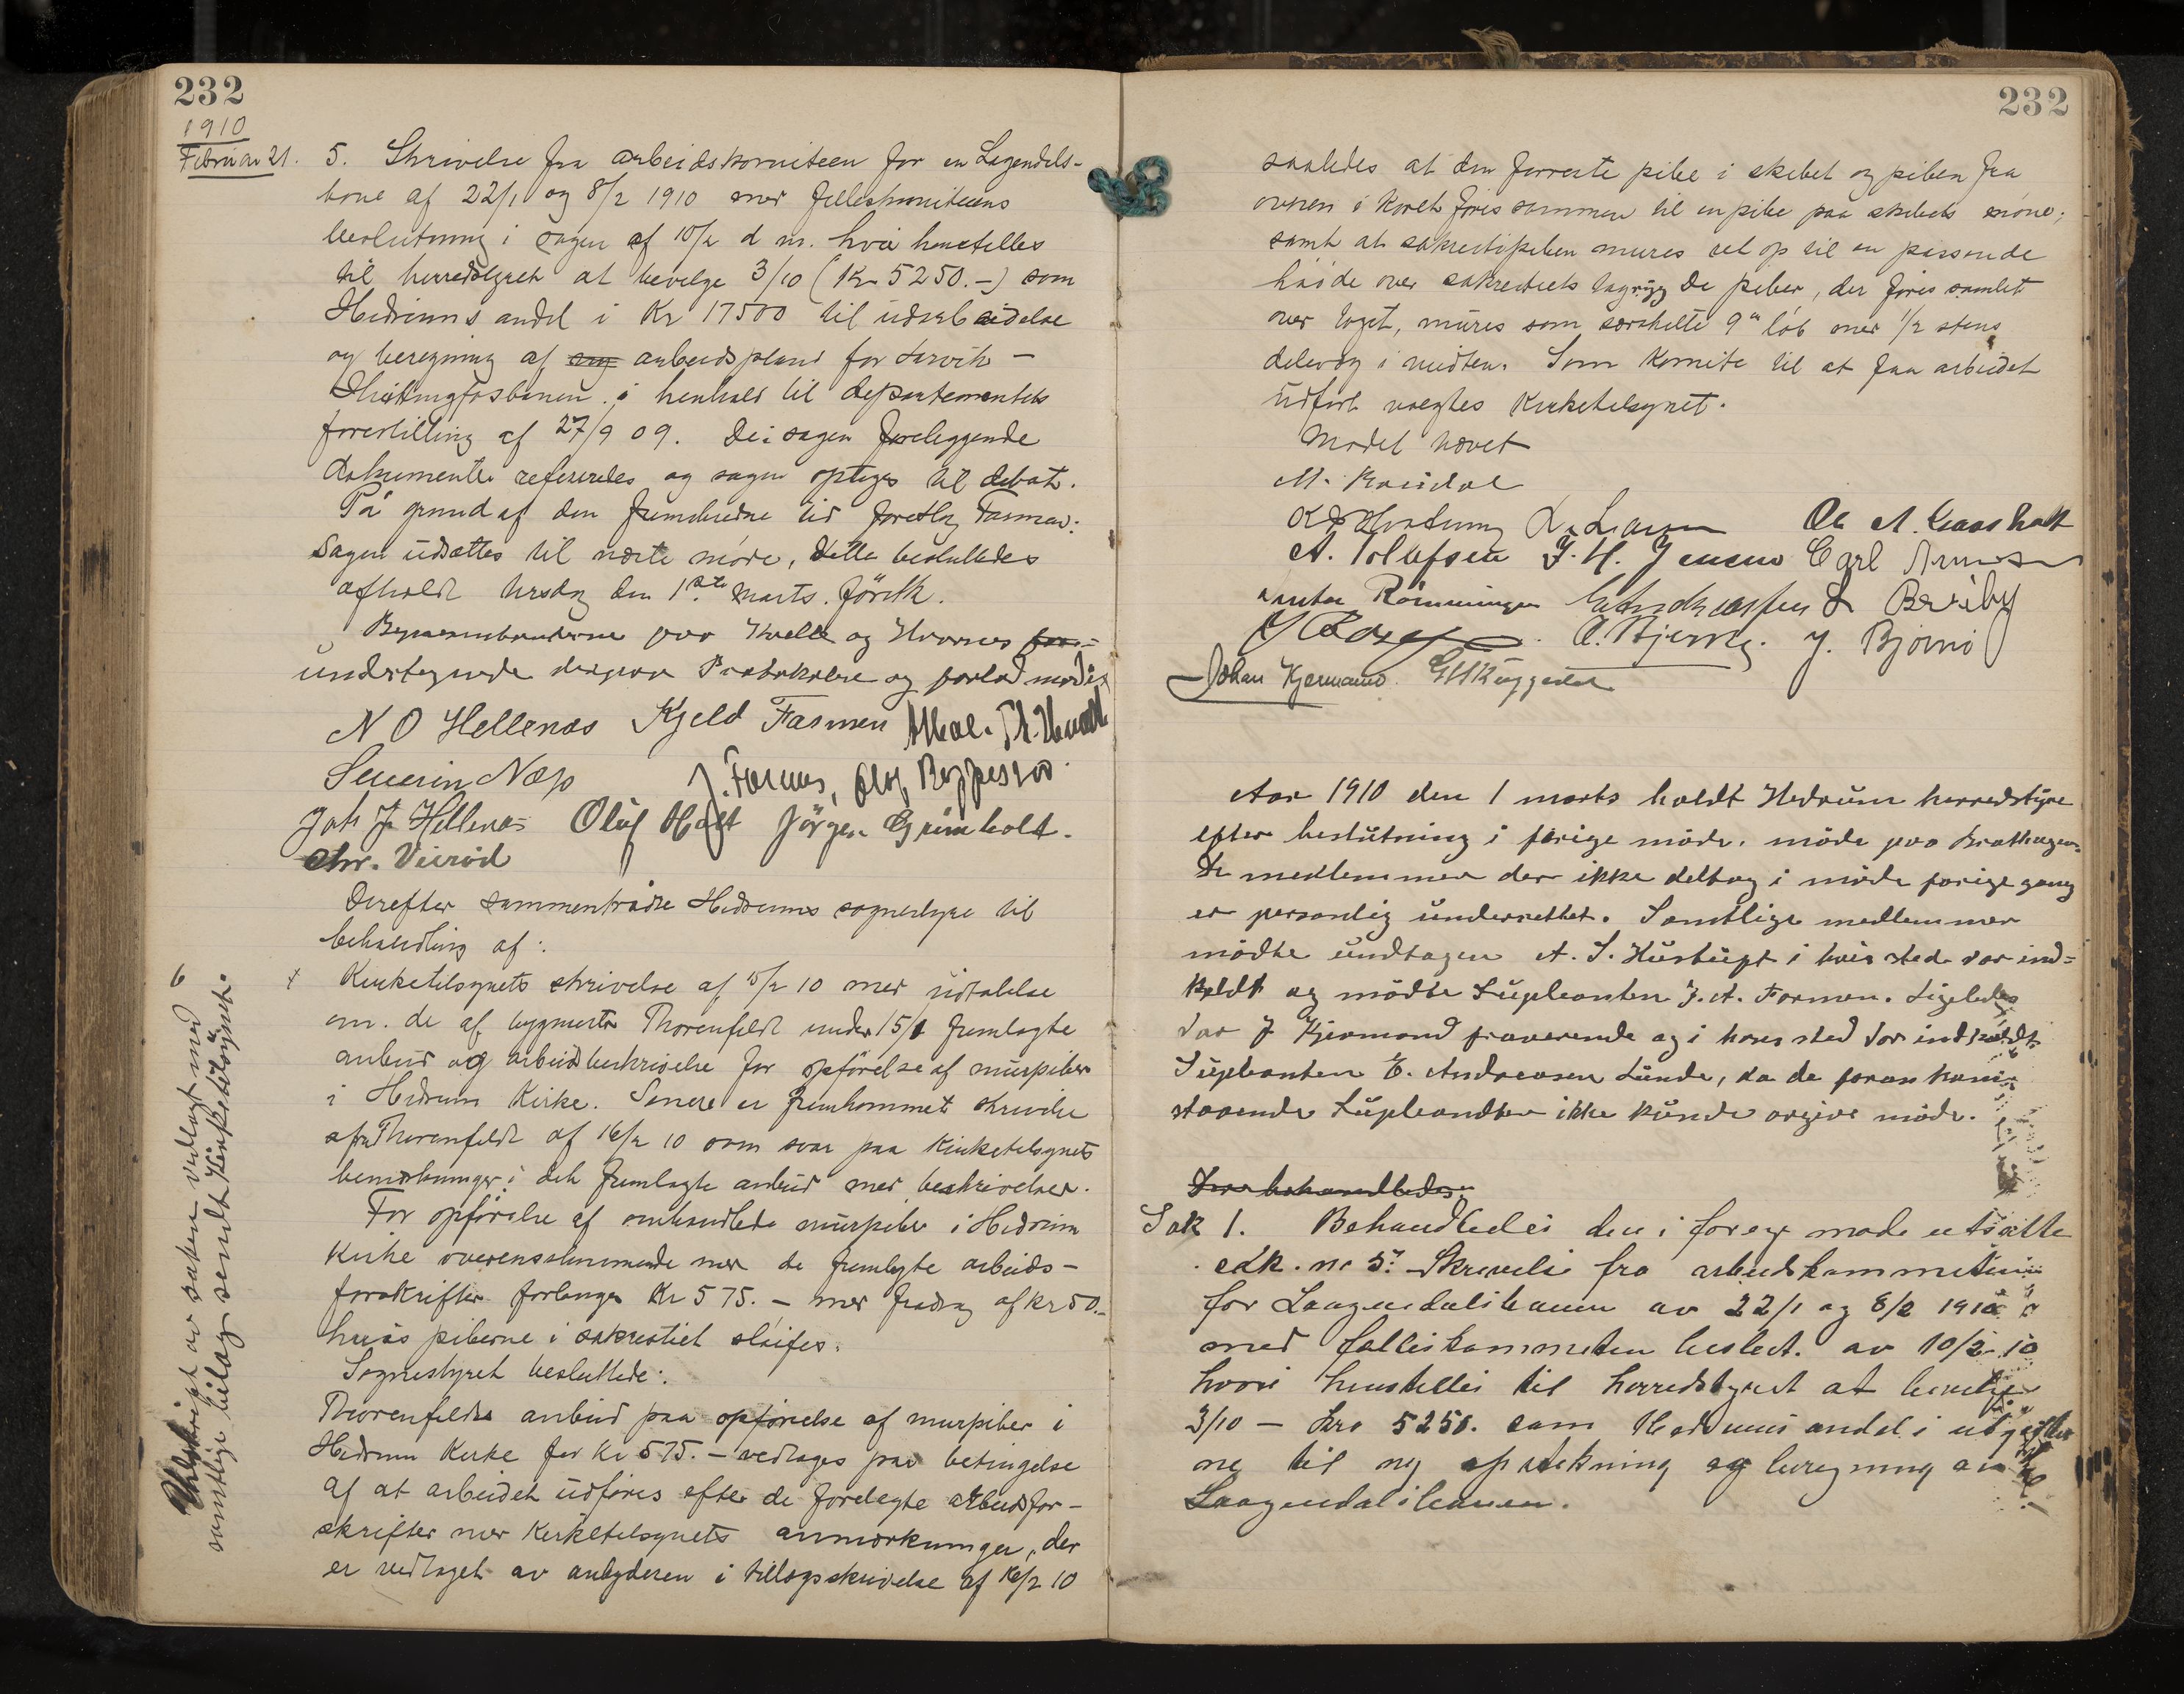 232
1910
Februar 21.
5. Skrivelse fra arbeidskomiteen for en Lagendals-
bane af 22/1 og 8/2 1910 med felleskomiteens
beslutning i sagen af 10/2 d m. hvori henstilles
til herredstyret at bevilge 3/10 (Kr 5250.-) som
Hedrums andel i Kr 17500 til udarbeidelse
og beregning af arbeidsplan for Larvik -
i henhold til departementets
forestilling af 27/9 09. De i sagen foreliggende
dokumenter refereredes og sagen optoges til debat.
På grund af den fremskredne tid foreslog Fasmer:
Sagen udsættes til næste møde, dette besluttedes
afholdt tirsdag den 1ste marts. førstk.
paa Kvelle og Hvarnes
undertegnede derpaa Protokolen og forlod mødet
N O Hellenes Kjeld Fasmer
Severin Næss
Joh J. Hellenes Oluf Holt Jörgen Grimholt.
Chr. Veiröd
Derefter sammentraadte Hedrums sognestyre til
behandling af:
Kirketilsynets skrivelse af 15/2 10 med udtalelse
om de af bygmester Thorenfeldt under 15/1 fremlagte
anbud og arbeidsbeskrivelse for opförelse af murpiber
i Hedrum Kirke. Senere er fremkommet skrivelse
fra Thorenfeldt af 16/2 10 som svar paa Kirketilsynets
bemerkninger i det fremlagte anbud med beskrivelser.
For opförelse af omhandlede murpiber i Hedrum
Kirke overensstemmende med de fremlagte arbeids-
forskrifter forlanges Kr 575.- med fradrag af kr 50.-
hvis piberne i sakrestiet slöifes.
Sognestyret besluttede:
Thorenfeldts anbud paa opförelse af murpiber i
Hedrum Kirke for Kr 575.- vedtages paa betingelse
af at arbeidet udföres efter de forelagte arbeidsfor-
skrifter med Kirketilsynets anmærkninger, der
er vedtaget av anbyderen i tillægsskrivelse af 16/2 10
6
Utskrift av saken vedlagt med
samtlige bilag sendt Kirketilsynet.
232
saaledes at den forreste pibe i skibet og piben fra
ovnen i koret føres sammen til en pibe paa skibets möne;
samt at sakrestipiben mures ret op til en passende
høide over sakrestiets tagryg De piber, der föres samlet
over taget, mures som særskilte 9" löb med 1/2 stens
delevæg i midten. Som Komite til at faa arbeidet
udfört valgtes Kirketilsynet.
Mødet hævet
A. Olufsen J. H. Jensen Carl
Anton Rønningen
A. Bjerke. J. Bjørnø
Johan Kjærmand
Aar 1910 den 1 marts holdt Hedrum herredstyre
efter beslutning i forige möde. möde paa Brathagen.
De medlemmer der ikke deltog i möde forige gang
er personlig underrettet. Samtlige medlemmer
mödte undtagen A. S. i hvis sted var ind=
kaldt og mödte Supleanten J. A. Farmen. Ligeledes
var J Kjærmand fraværende og i hans sted var indkaldt
Supleanten E. Andreasen Lunde, da de foran ham
staaende Supleandter ikke kunde avgive möde.
Sak 1. Behandledes den i forrige møde utsatte
sak. nr 5: Skrivelse fra arbeidskommiteen
for Laagendalsbanen av 22/1 og 8/2 1910
med felleskommiteen beslut. av 10/2-10
hvori henstilles til herredstyret at bevilge
3/10 - kro 5250. som Hedrums andel i utgifter
ne til ny opstikning og beregning av
Laagendalsbanen.